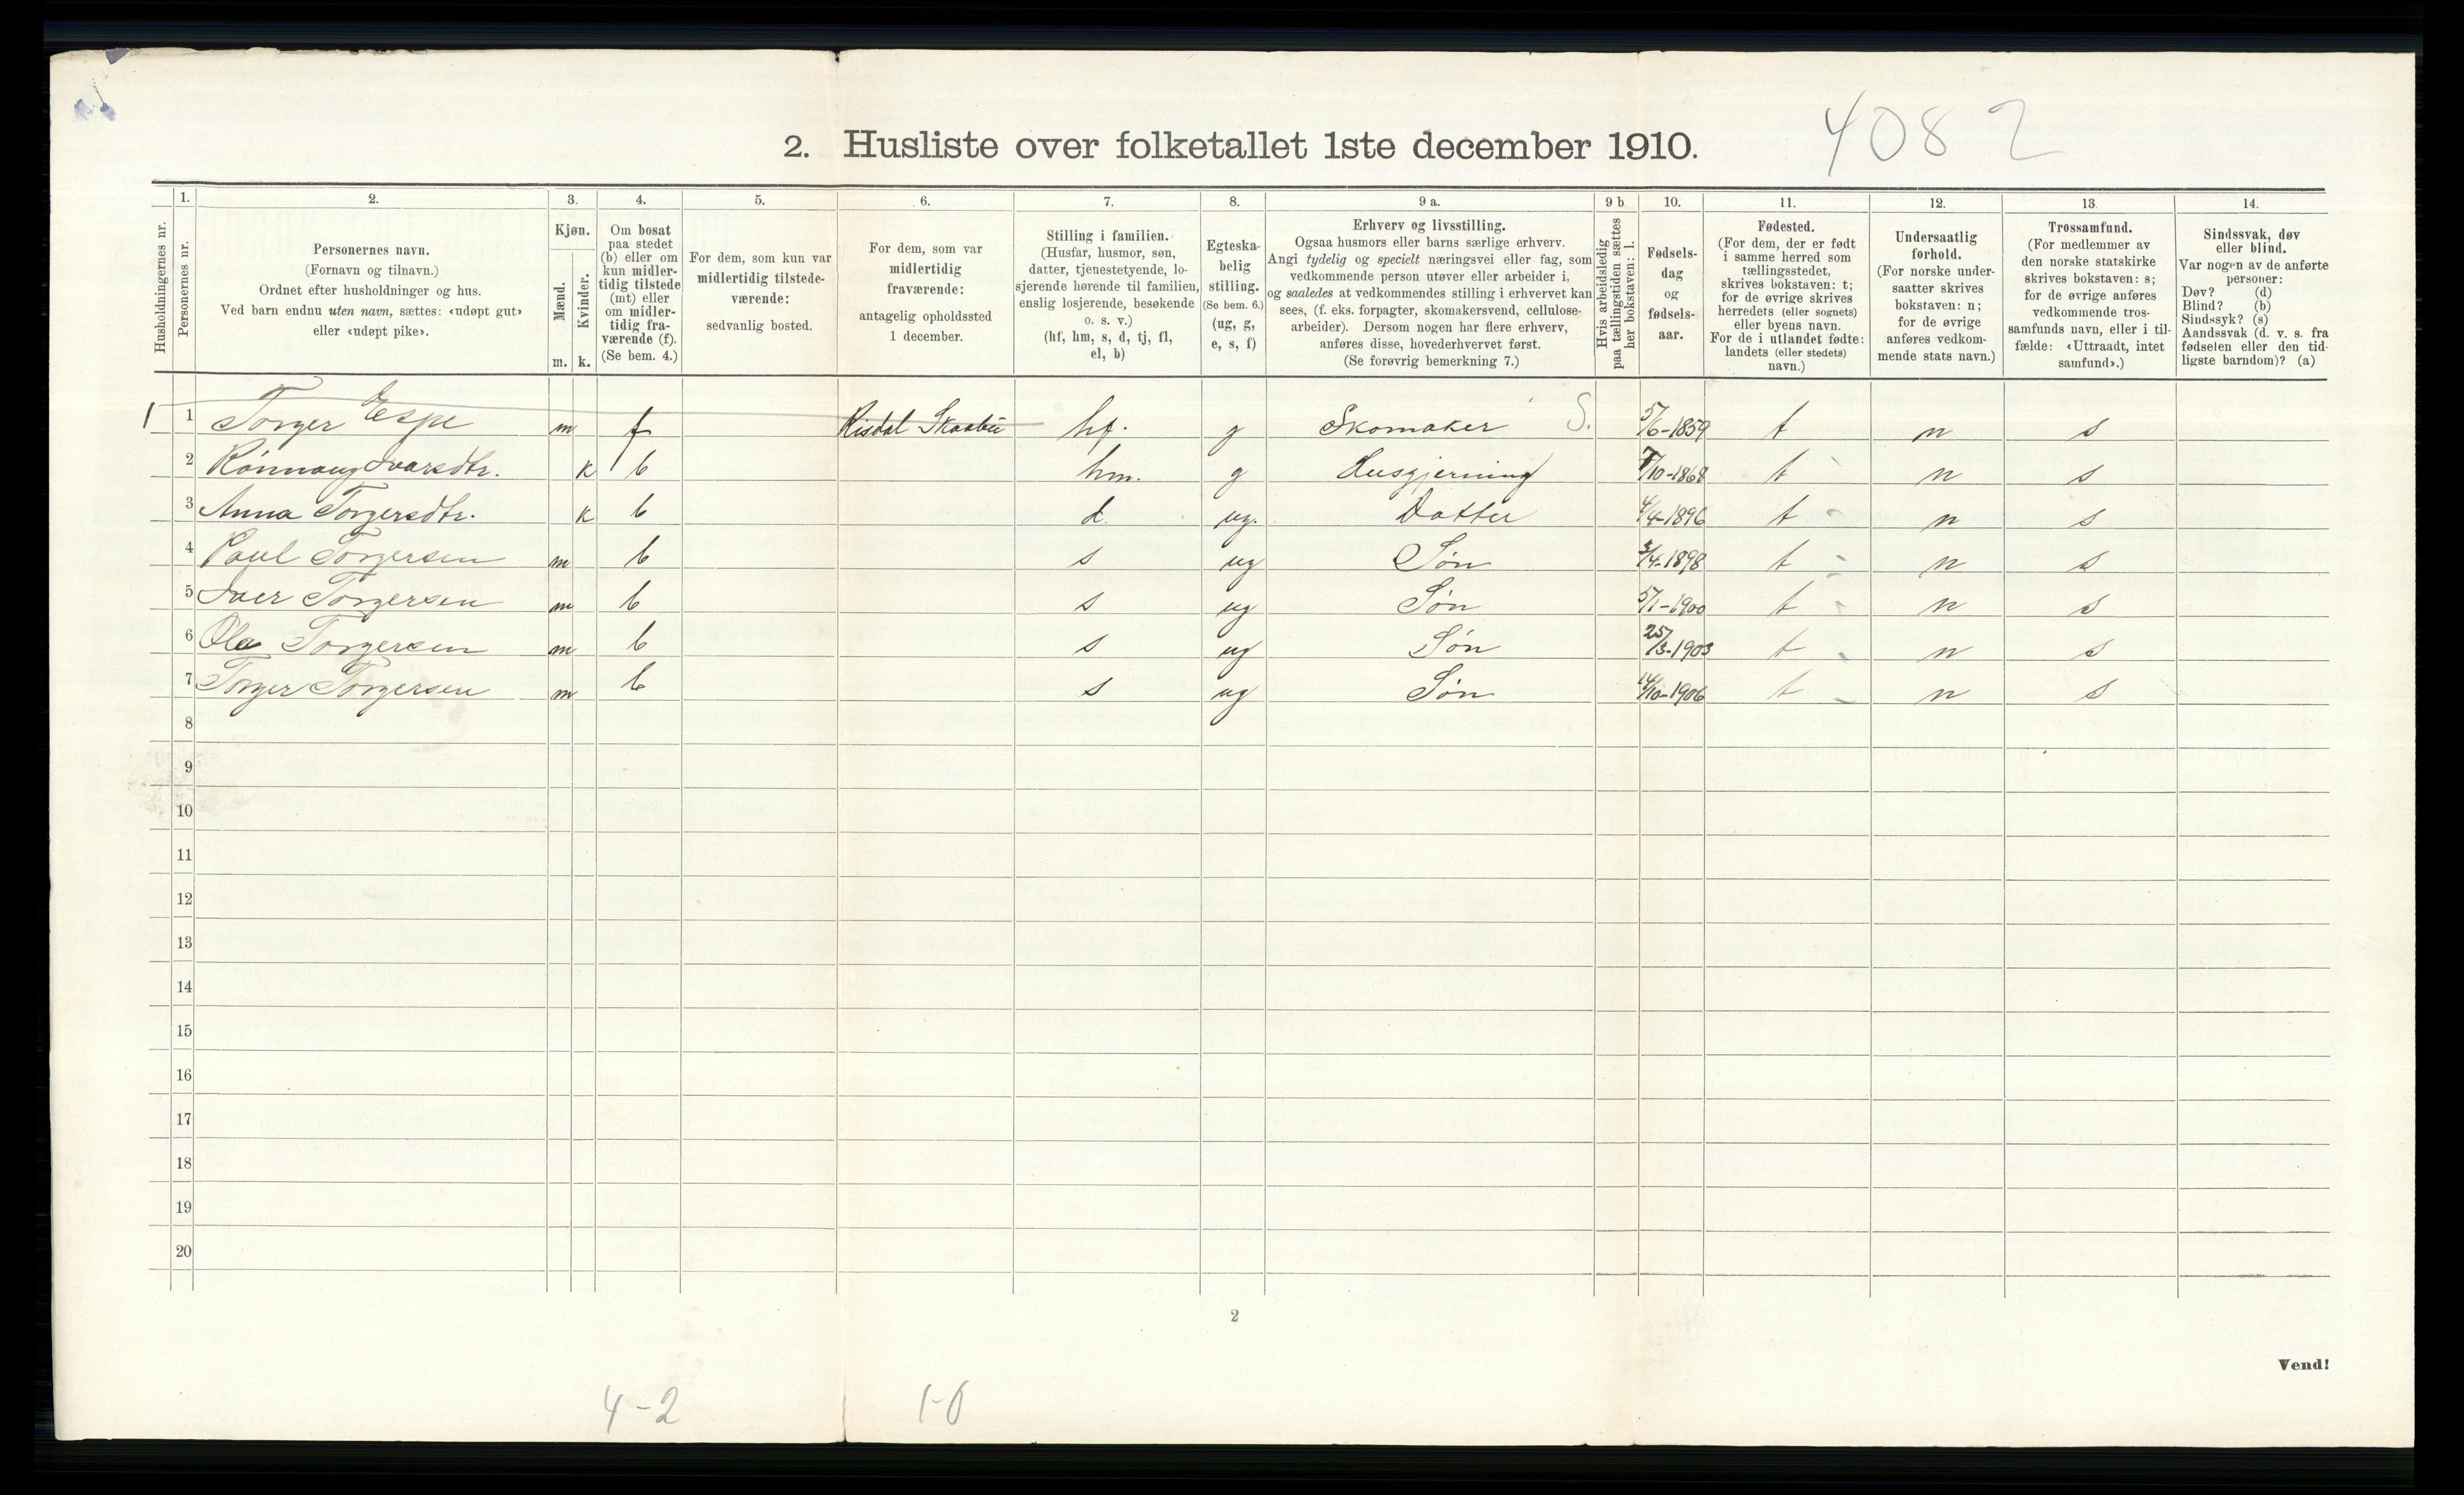 4082
2. Husliste over folketallet 1ste december 1910.
Husholdningernes nr.
1.
Personernes nr.
2.
Personernes navn.
(Fornavn og tilnavn.)
Ordnet efter husholdninger og hus.
Ved barn endnu uten navn, sættes: «udøpt gut»
eller «udøpt pike».
3.
Kjøn.
Mænd.
m.
Kvinder.
k.
4.
Om bosat
paa stedet
(b) eller om
kun midler-
tidig tilstede
(mt) eller
om midler-
tidig fra-
værende (f).
(Se bem. 4.)
5.
For dem, som kun var
midlertidig tilstede-
værende:
sedvanlig bosted.
6.
For dem, som var
midlertidig
fraværende:
antagelig opholdssted
1 december.
7.
Stilling i familien.
(Husfar, husmor, søn,
datter, tjenestetyende, lo-
sjerende hørende til familien,
enslig losjerende, besøkende
o. s. v.)
(hf, hm, s, d, tj, fl,
el, b)
8.
Egteska-
belig
stilling.
(Se bem. 6.)
(ug, g,
e, s, f)
9 a.
Erhverv og livsstilling.
Ogsaa husmors eller barns særlige erhverv.
Angi tydelig og specielt næringsvei eller fag, som
vedkommende person utøver eller arbeider i,
og saaledes at vedkommendes stilling i erhvervet kan
sees, (f. eks. forpagter, skomakersvend, cellulose-
arbeider). Dersom nogen har flere erhverv,
anføres disse, hovederhvervet først.
(Se forøvrig bemerkning 7.)
9 b
Hvis arbeidsledig
paa tællingstiden sættes
her bokstaven: l.
10.
Fødsels-
dag
og
fødsels-
aar.
11.
Fødested.
(For dem, der er født
i samme herred som
tællingsstedet,
skrives bokstaven: t;
for de øvrige skrives
herredets (eller sognets)
eller byens navn.
For de i utlandet fødte:
landets (eller stedets)
navn.)
12.
Undersaatlig
forhold.
(For norske under-
saatter skrives
bokstaven: n;
for de øvrige
anføres vedkom-
mende stats navn.)
13.
Trossamfund.
(For medlemmer av
den norske statskirke
skrives bokstaven: s;
for de øvrige anføres
vedkommende tros-
samfunds navn, eller i til-
fælde: «Uttraadt, intet
samfund».)
14.
Sindssvak, døv
eller blind.
Var nogen av de anførte
personer:
Døv? (d)
Blind? (b)
Sindssyk? (s)
Aandssvak (d. v. s. fra
fødselen eller den tid-
ligste barndom)? (a)
1 1 Torger Espe m f Risdal Skaabu hf. g Skomaker S. 5/6-1859 t n s
2 Rönnaug Ivarsdtr. k b hm. g Husgjerning 7/10-1868 t n s
3 Anna Torgersdtr. k b d. ug. Datter 4/4-1896 t n s
4 Paul Torgersen m b s ug Søn 3/4-1898 t n s
5 Iver Torgersen m b s ug Søn 5/1-1900 t n s
6 Ola Torgersen m b s ug Søn 25/3-1903 t n s
7 Torger Torgersen m b s ug Søn 14/10-1906 t n s
8
9
10
11
12
13
14
15
16
17
18
19
20
2
Vend!
4-2 1-0